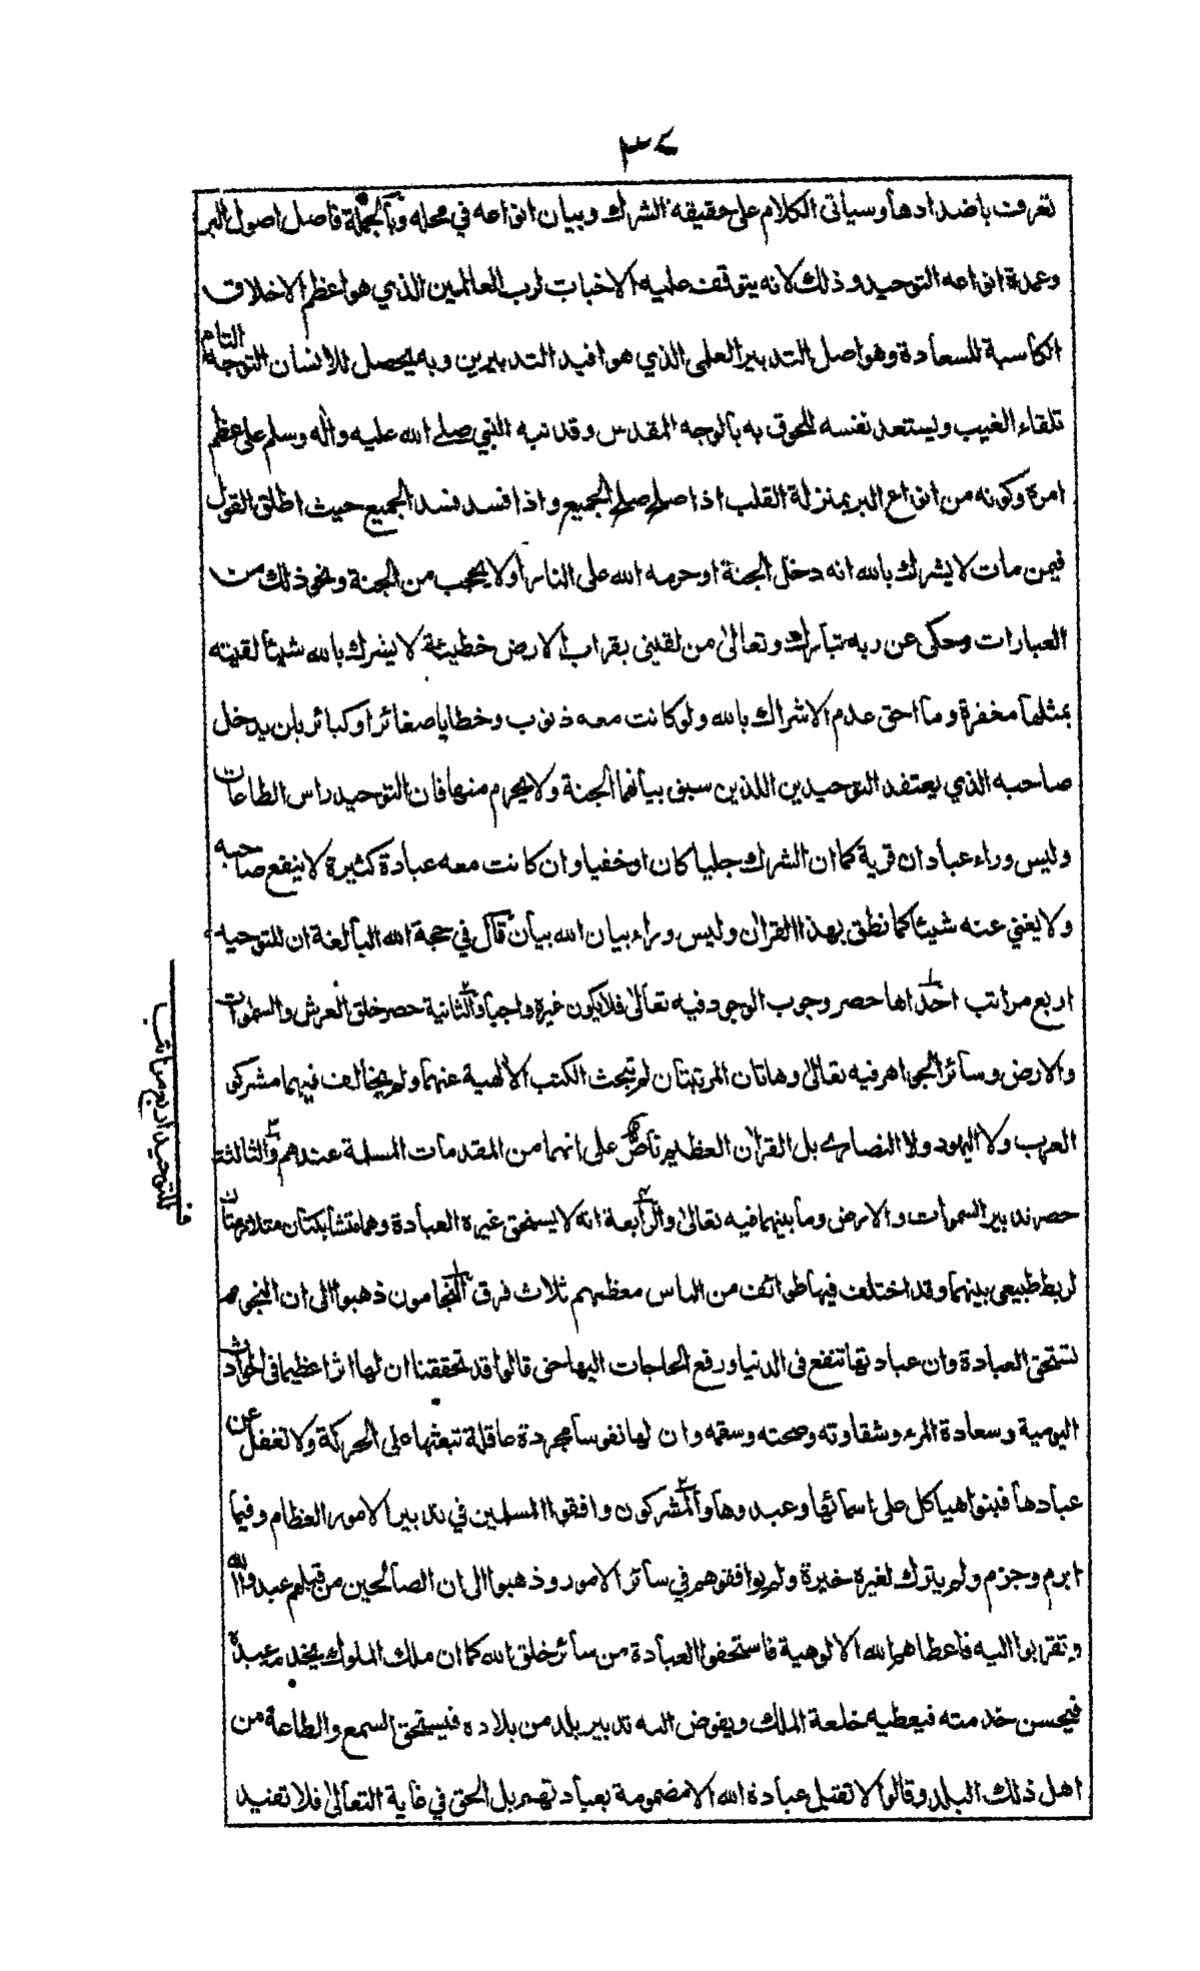 ٣٤
تعرف باضدادها وسياتى الكلام على حقيقة الشرك وبيان انواعه في محله وبالجملة فاصل اصول البر
وعمدة انواعه التوحيد وذلك لانه يتوقف عليه الاخبات لرب العالمين الذي هو اعظم الاخلاق
الكاسبة للسعادة وهو اصل التدبير العلمى الذي هو افيد التدبيرين وبه يحصل للانسان التوجه التام
تلقاء الغيب ويستعد نفسه للحوق به بالوجه المقدس وقد نبه النبي صلى الله عليه واله وسلم على عظم
امره وكونه من انواع البر بمنزلة القلب اذا صلح صلح الجميع واذا فسد فسد الجميع حيث اطلق القول
فيمن مات لا يشرك بالله انه دخل الجنة او حرمه الله على النار او لا يحجب من الجنة ونحو ذلك من
العبارات وحكى عن ربه تبارك وتعالى من لقينى بقراب الارض خطيئة لا يشرك بالله شيئا لقيته
بمثلها مغفرة وما احق عدم الاشراك بالله ولو كانت معه ذنوب وخطايا صغائر او كبائر بان يدخل
صاحبه الذي يعتقد التوحيدين اللذين سبق بيانهما الجنة ولا يحرم منها فان التوحيد راس الطاعات
وليس وراء عبادان قرية كما ان الشرك جليا كان او خفيا وان كانت معه عبادة كثيرة لا ينفع صاحبه
ولا يغني عنه شيئا كما نطق بهذا القران وليس وراء بيان الله بيان قال في حجة الله البالغة ان للتوحيد
اربع مراتب احداها حصر وجوب الوجود فيه تعالى فلا يكون غيره واجبا والثانية حصر خلق العرش والسموات
والارض وسائر الجواهر فيه تعالى وهاتان المرتبتان لم تبحث الكتب الالهية عنهما ولم يخالف فيهما مشركو
العرب ولا اليهود ولا النصارى بل القران العظيم ناص على انهما من المقدمات المسلمة عندهم والثالثة
حصر تدبير السموات والارض وما بينهما فيه تعالى والرابعة انه لا يستحق غيره العبادة وهما متشابكتان متلازمتان
لربط طبيعى بينهما وقد اختلف فيها طوائف من الناس معظمهم ثلاث فرق النجامون ذهبوا الى ان النجوم
تستحق العبادة وان عبادتها تنفع فى الدنيا ورفع الحاجات اليها حق قالوا قد تحققنا ان لها اثرا عظيما فى الحوادث
اليومية وسعادة المرء وشقاوته وصحته وسقمه وان لها نفوسا مجردة عاقلة تبعثها على الحركة ولا تغفل عن
عبادها فبنوا هياكل على اسمائها وعبدوها والمشركون وافقوا المسلمين في تدبير الامور العظام وفيما
ابرم وجزم ولم يترك لغيره خيرة ولم يوافقوهم في سائر الامور وذهبوا الى ان الصالحين من قبلهم عبدوا الله
وتقربوا اليه فاعطاهم الله الالوهية فاستحقوا العبادة من سائر خلق الله كما ان ملك الملوك يخدمه عبده
فيحسن خدمته فيعطيه خلعة الملك ويفوض اليه تدبير بلد من بلاده فيستحق السمع والطاعة من
اهل ذلك البلد وقالوا لا تقبل عبادة الله الا مضمومة بعبادتهم بل الحق في غاية التعالى فلا تفيد
ف للتوحيد اربع مراتب